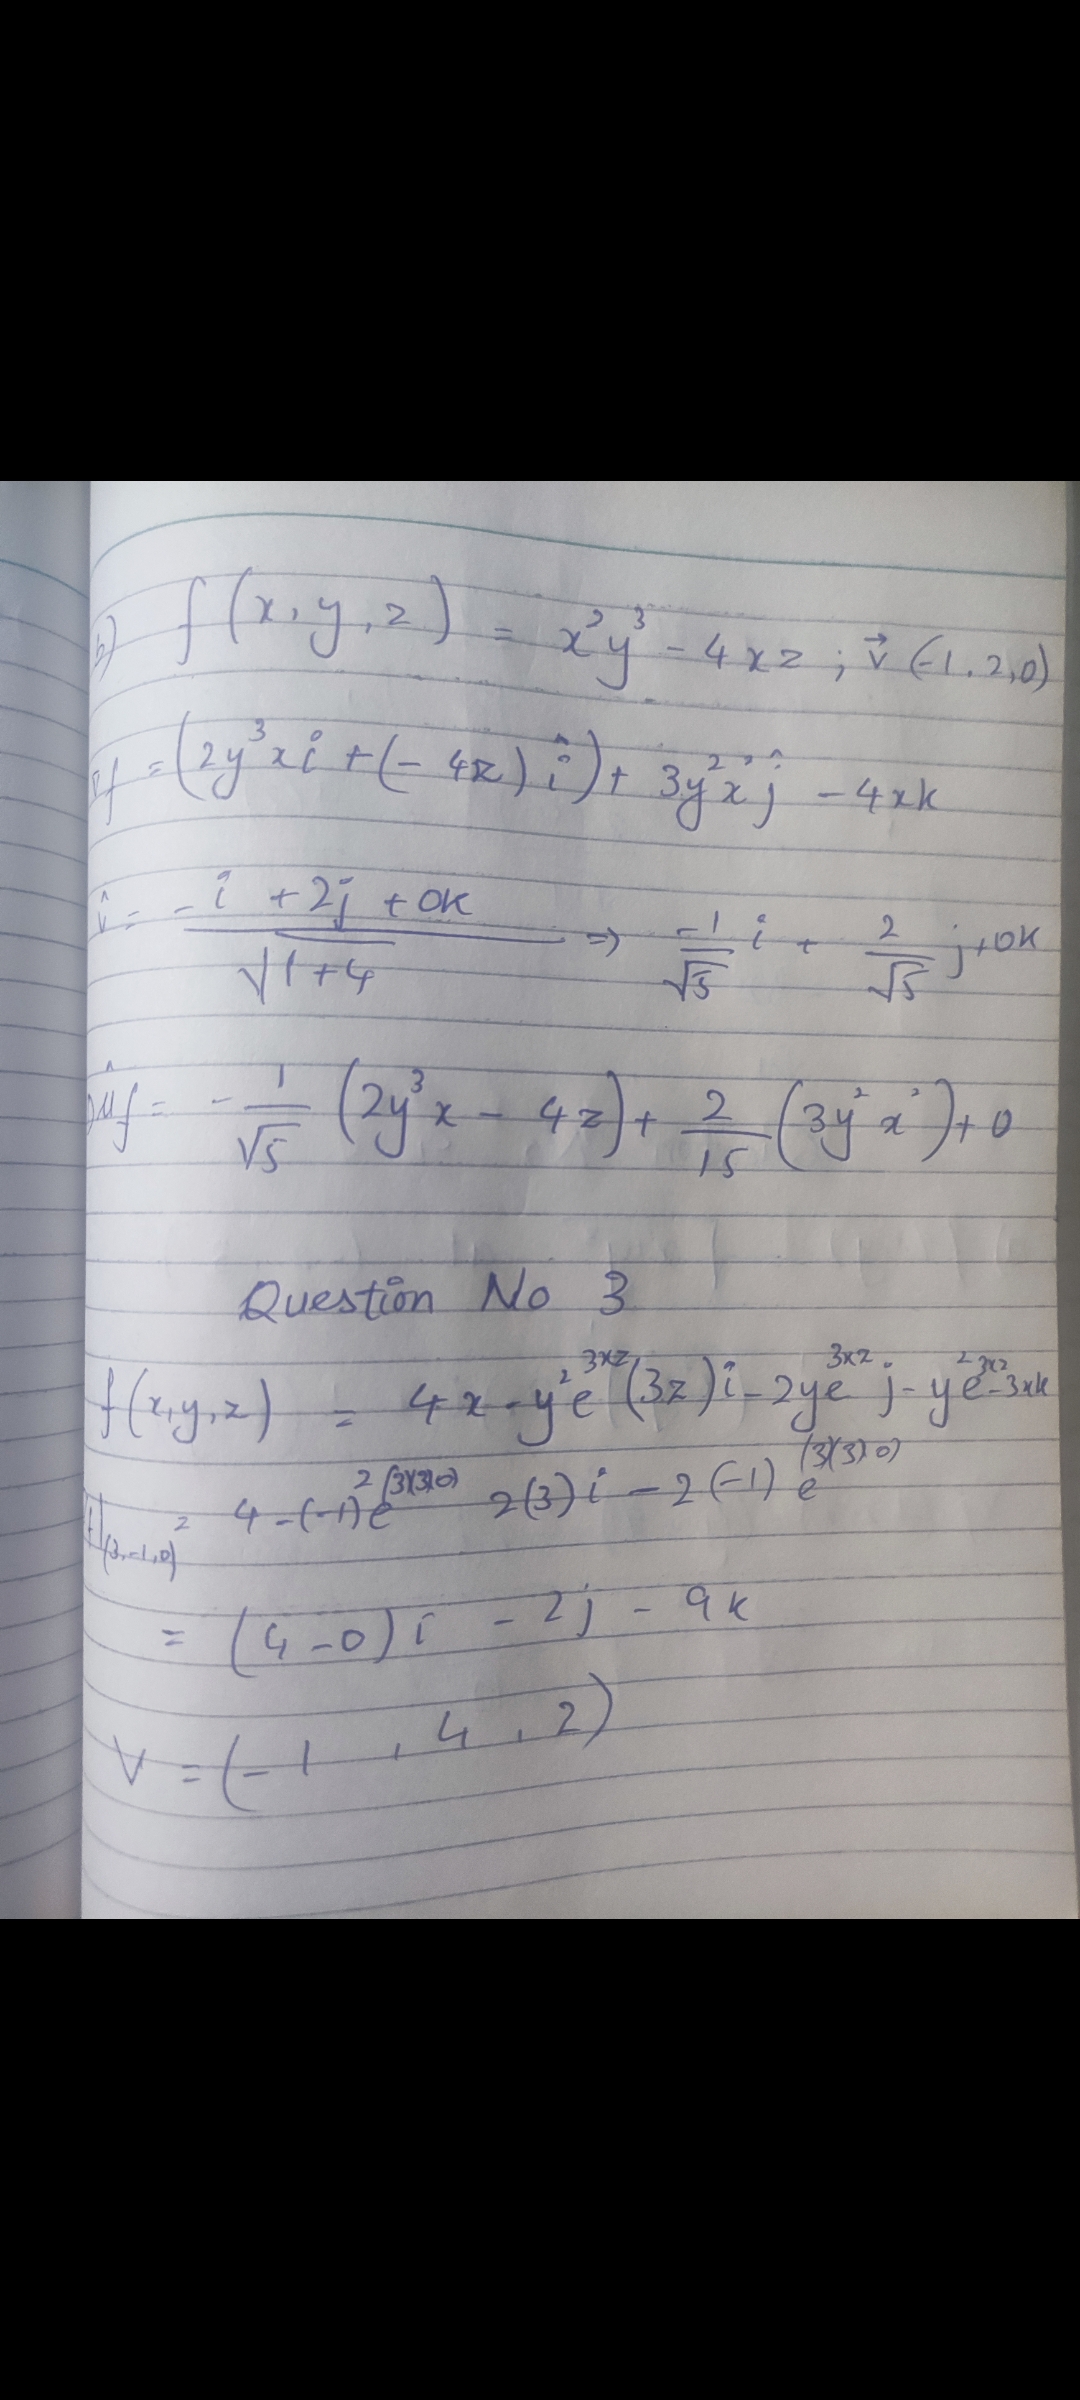 b) f(x,y,z) = x²y³ - 4xz ; v⃗ (-1.2,0)
∇f = (2y³xi + (-4z) î) + 3y²x²ĵ - 4xk
v̂ = -i + 2j + 0k / √1+4 ⇒ -1/√5 i + 2/√5 j + 0k
Dûf = -1/√5 (2y³x - 4z) + 2/15 (3y²x²) + 0
Question No 3
f(x,y,z) = 4x - y²e^3xz (3z)i - 2ye^3xz j - y²e^3xz - 3xk
(3,-1,0) 4 - (-1)²e^(3)(3)(0) 2(3)i - 2(-1) e^(3)(3)(0)
= (4-0)i - 2j - 9k
V = (-1, 4, 2)